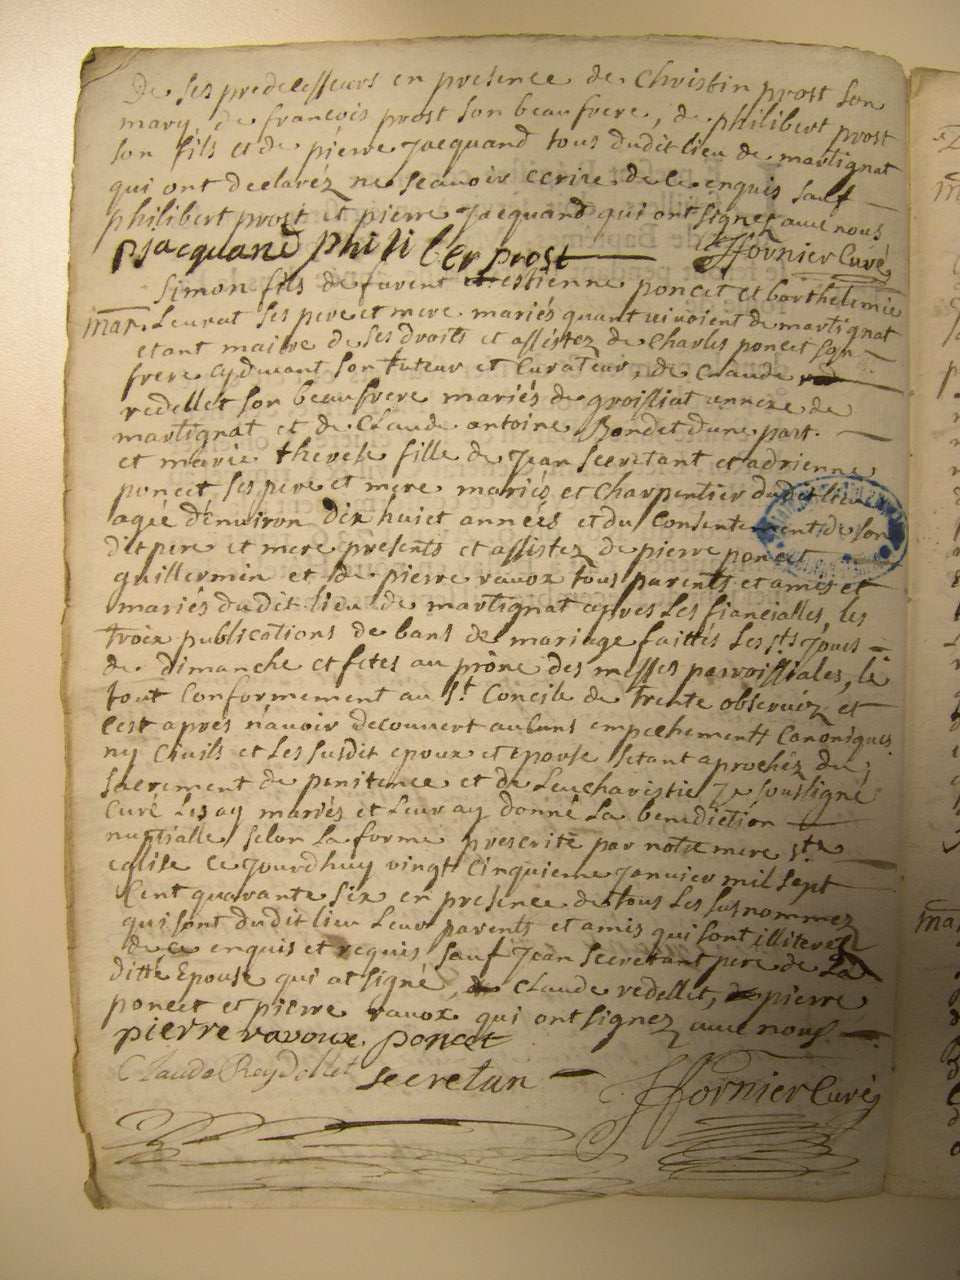 De ses predecesseurs en presence de Christin prost son
mary, de françois prost son beaufrere, de philibert prost
son fils et de pierre Jacquand tous dudit lieu de martignat
qui ont declarez ne sçauoir ecrire de ce enquis sauf
philibert prost et pierre Jacquand qui ont signez auec nous
pJacquand philiber prost ffornier Curé
Simon fils de furent estienne poncet et barthelemie
mar. Leurat ses pere et mere mariés quant viuoient de martignat
etant maitre de ses droits et assistez de Charles poncet son
frere cydeuant son tuteur et Curateur, de Claude
redellet son beaufrere mariés de groissiat annexe de
martignat et de Claude antoine Bondet dune part.
et marie therese fille de Jean Secretant et adrienne
poncet ses pere et mere mariés et Charpentier dudit lieu
agée d'enuiron dix huict années et du Consentement de son
dit pere et mere presents et assistez de pierre poncet
guillermin et de pierre rauox tous parents et amis et
mariés dudit lieu de martignat apres les fiancialles, les
troix publications de bans de mariage faittes les sts Jours
de dimanche et fetes au prône des messes parroissiales, le
tout Conformement au st Concile de trente obseruéz et
cest apres n'auoir decouuert aucuns empechements Canoniques
ny Ciuils et les susdit epoux et epouse setant aprochéz du
sacrement de penitence et de Leucharistie Je soussigné
Curé Les ay mariés et Leur ay donné La benediction
nuptialle selon La forme prescrite par notre mere ste
eglise ce Jourdhuy vingt Cinquieme Januier mil sept
Cent quarante six en presence de tous Les susnommez
qui sont dudit lieu Leur parents et amis qui sont illiteres
de ce enquis et requis sauf Jean Secretant pere de La
ditte Epouse qui at signé, Claude redellet, pierre
poncet et pierre rauox qui ont signez auec nous
pierre ravoux. poncet
Claude Reydellet secretan ffornier Curé